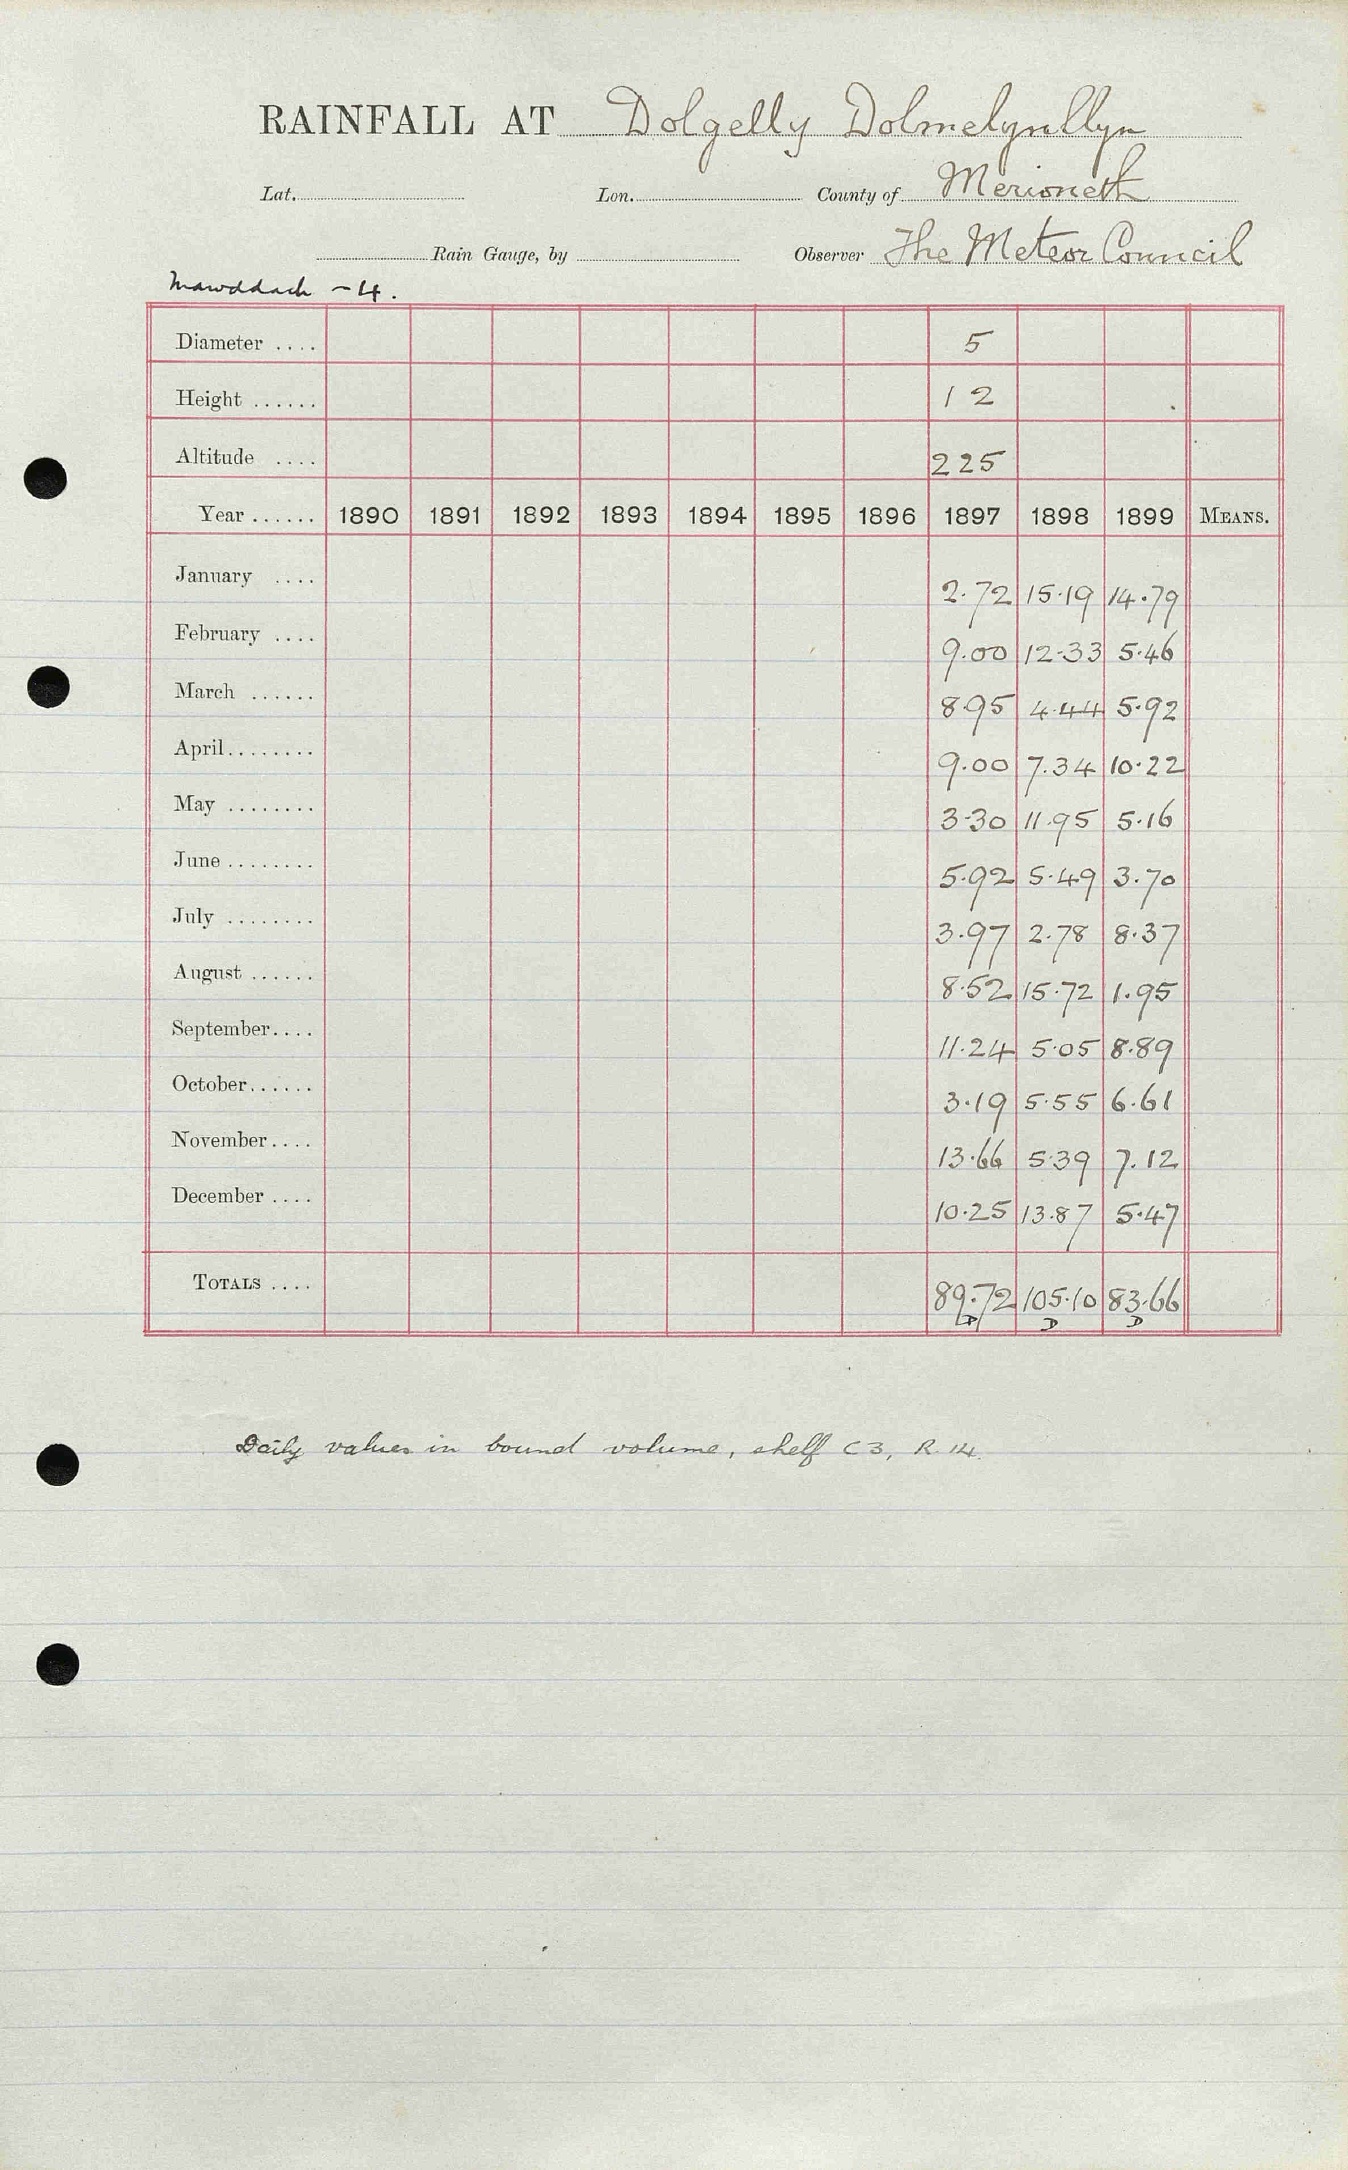 RAINFALL AT Dolgelly Dolmelynllyn
Lat. Lon. County of Merioneth
Rain Gauge, by Observer The Meteor Council
Mawddach - 4.
Diameter .... 5
Height ...... 12
Altitude .... 225
Year ...... 1890 1891 1892 1893 1894 1895 1896 1897 1898 1899 MEANS.
January .... 2.72 15.19 14.79
February .... 9.00 12.33 5.46
March ...... 8.95 4.44 5.92
April ........ 9.00 7.34 10.22
May ........ 3.30 11.95 5.16
June ........ 5.92 5.49 3.70
July ........ 3.97 2.78 8.37
August ...... 8.52 15.72 1.95
September .... 11.24 5.05 8.89
October ...... 3.19 5.55 6.61
November .... 13.66 5.39 7.12
December .... 10.25 13.87 5.47
TOTALS .... 89.72 105.10 83.66
D D D
Daily values in bound volume, shelf C3, R. 14.